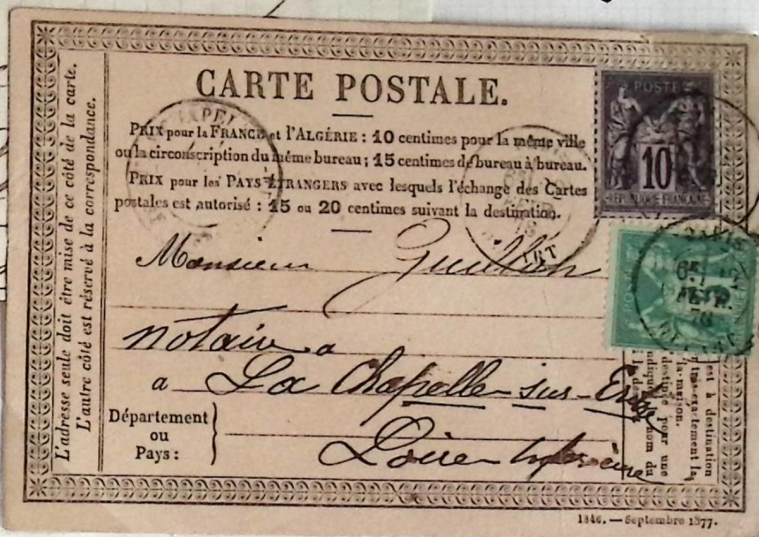 CARTE POSTALE.
PRIX pour la FRANCE et l'ALGÉRIE : 10 centimes pour la même ville
ou la circonscription du même bureau ; 15 centimes de bureau à bureau.
PRIX pour les PAYS ÉTRANGERS avec lesquels l'échange des Cartes
postales est autorisé : 15 ou 20 centimes suivant la destination.
L'adresse seule doit être mise de ce côté de la carte.
L'autre côté est réservé à la correspondance.
POSTE
10
RÉPUBLIQUE FRANÇAISE
PARIS
FEVR.
78
Monsieur Guitton
notaire a
a La Chapelle-sur-Erdre
Département
ou
Pays :
Loire Inférieure
est à destination
exactement la
maison.
destinée pour une
indiquer
nom du
1846. — Septembre 1877.